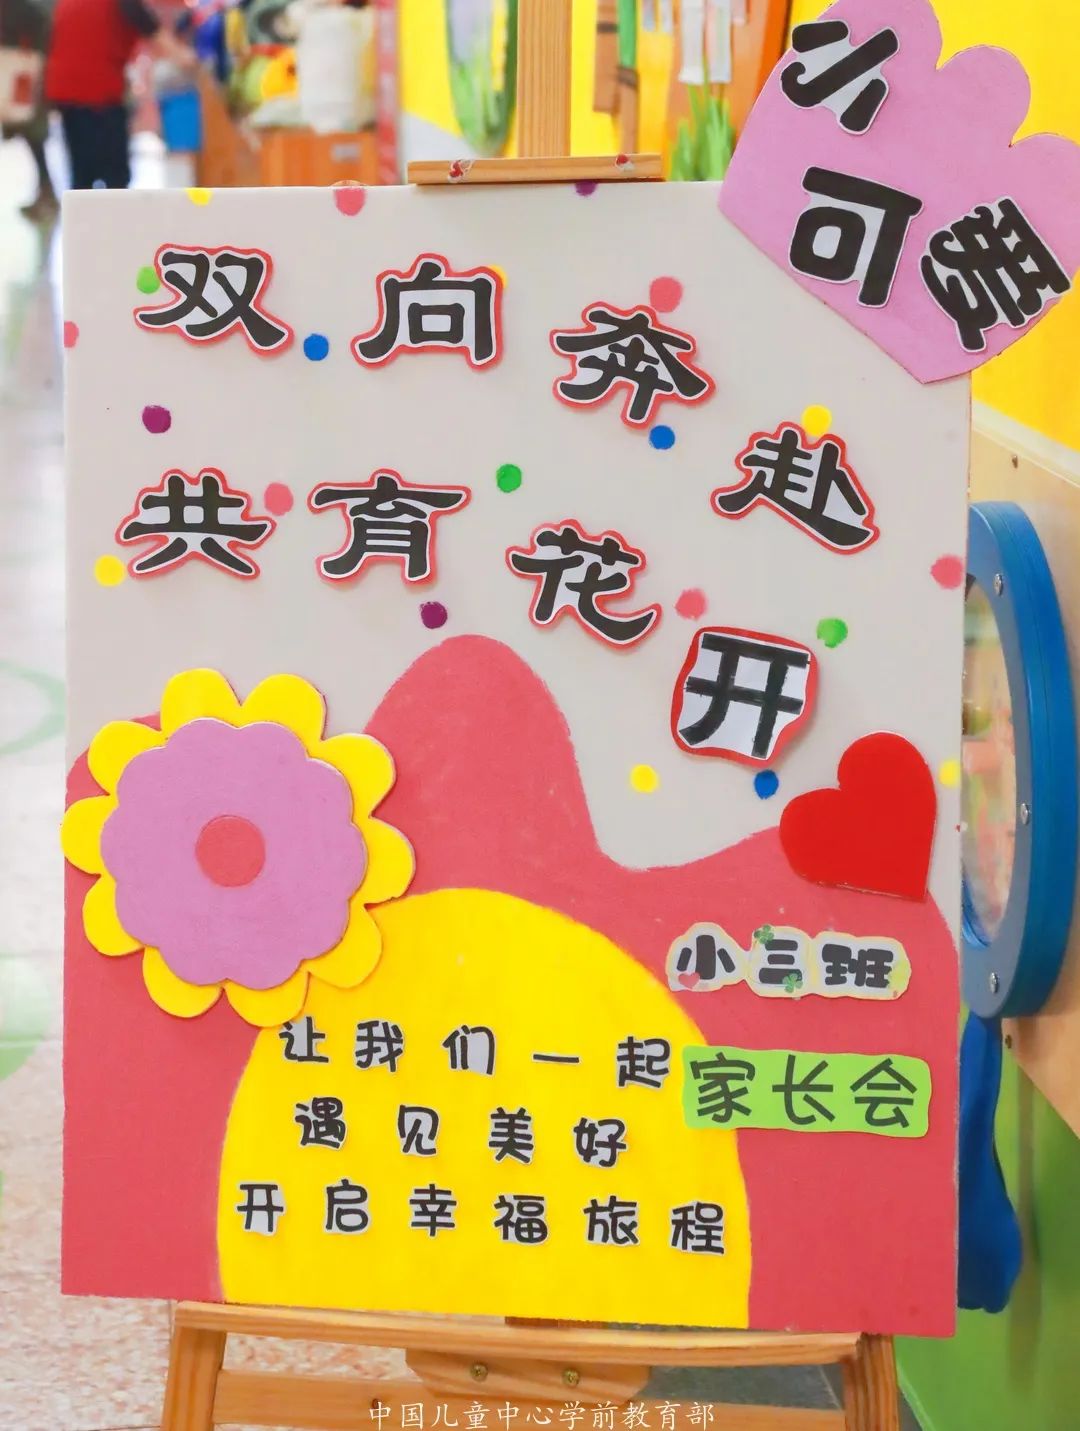 小可爱
双向奔赴
共育花开
小三班
家长会
让我们一起
遇见美好
开启幸福旅程
中国儿童中心学前教育部